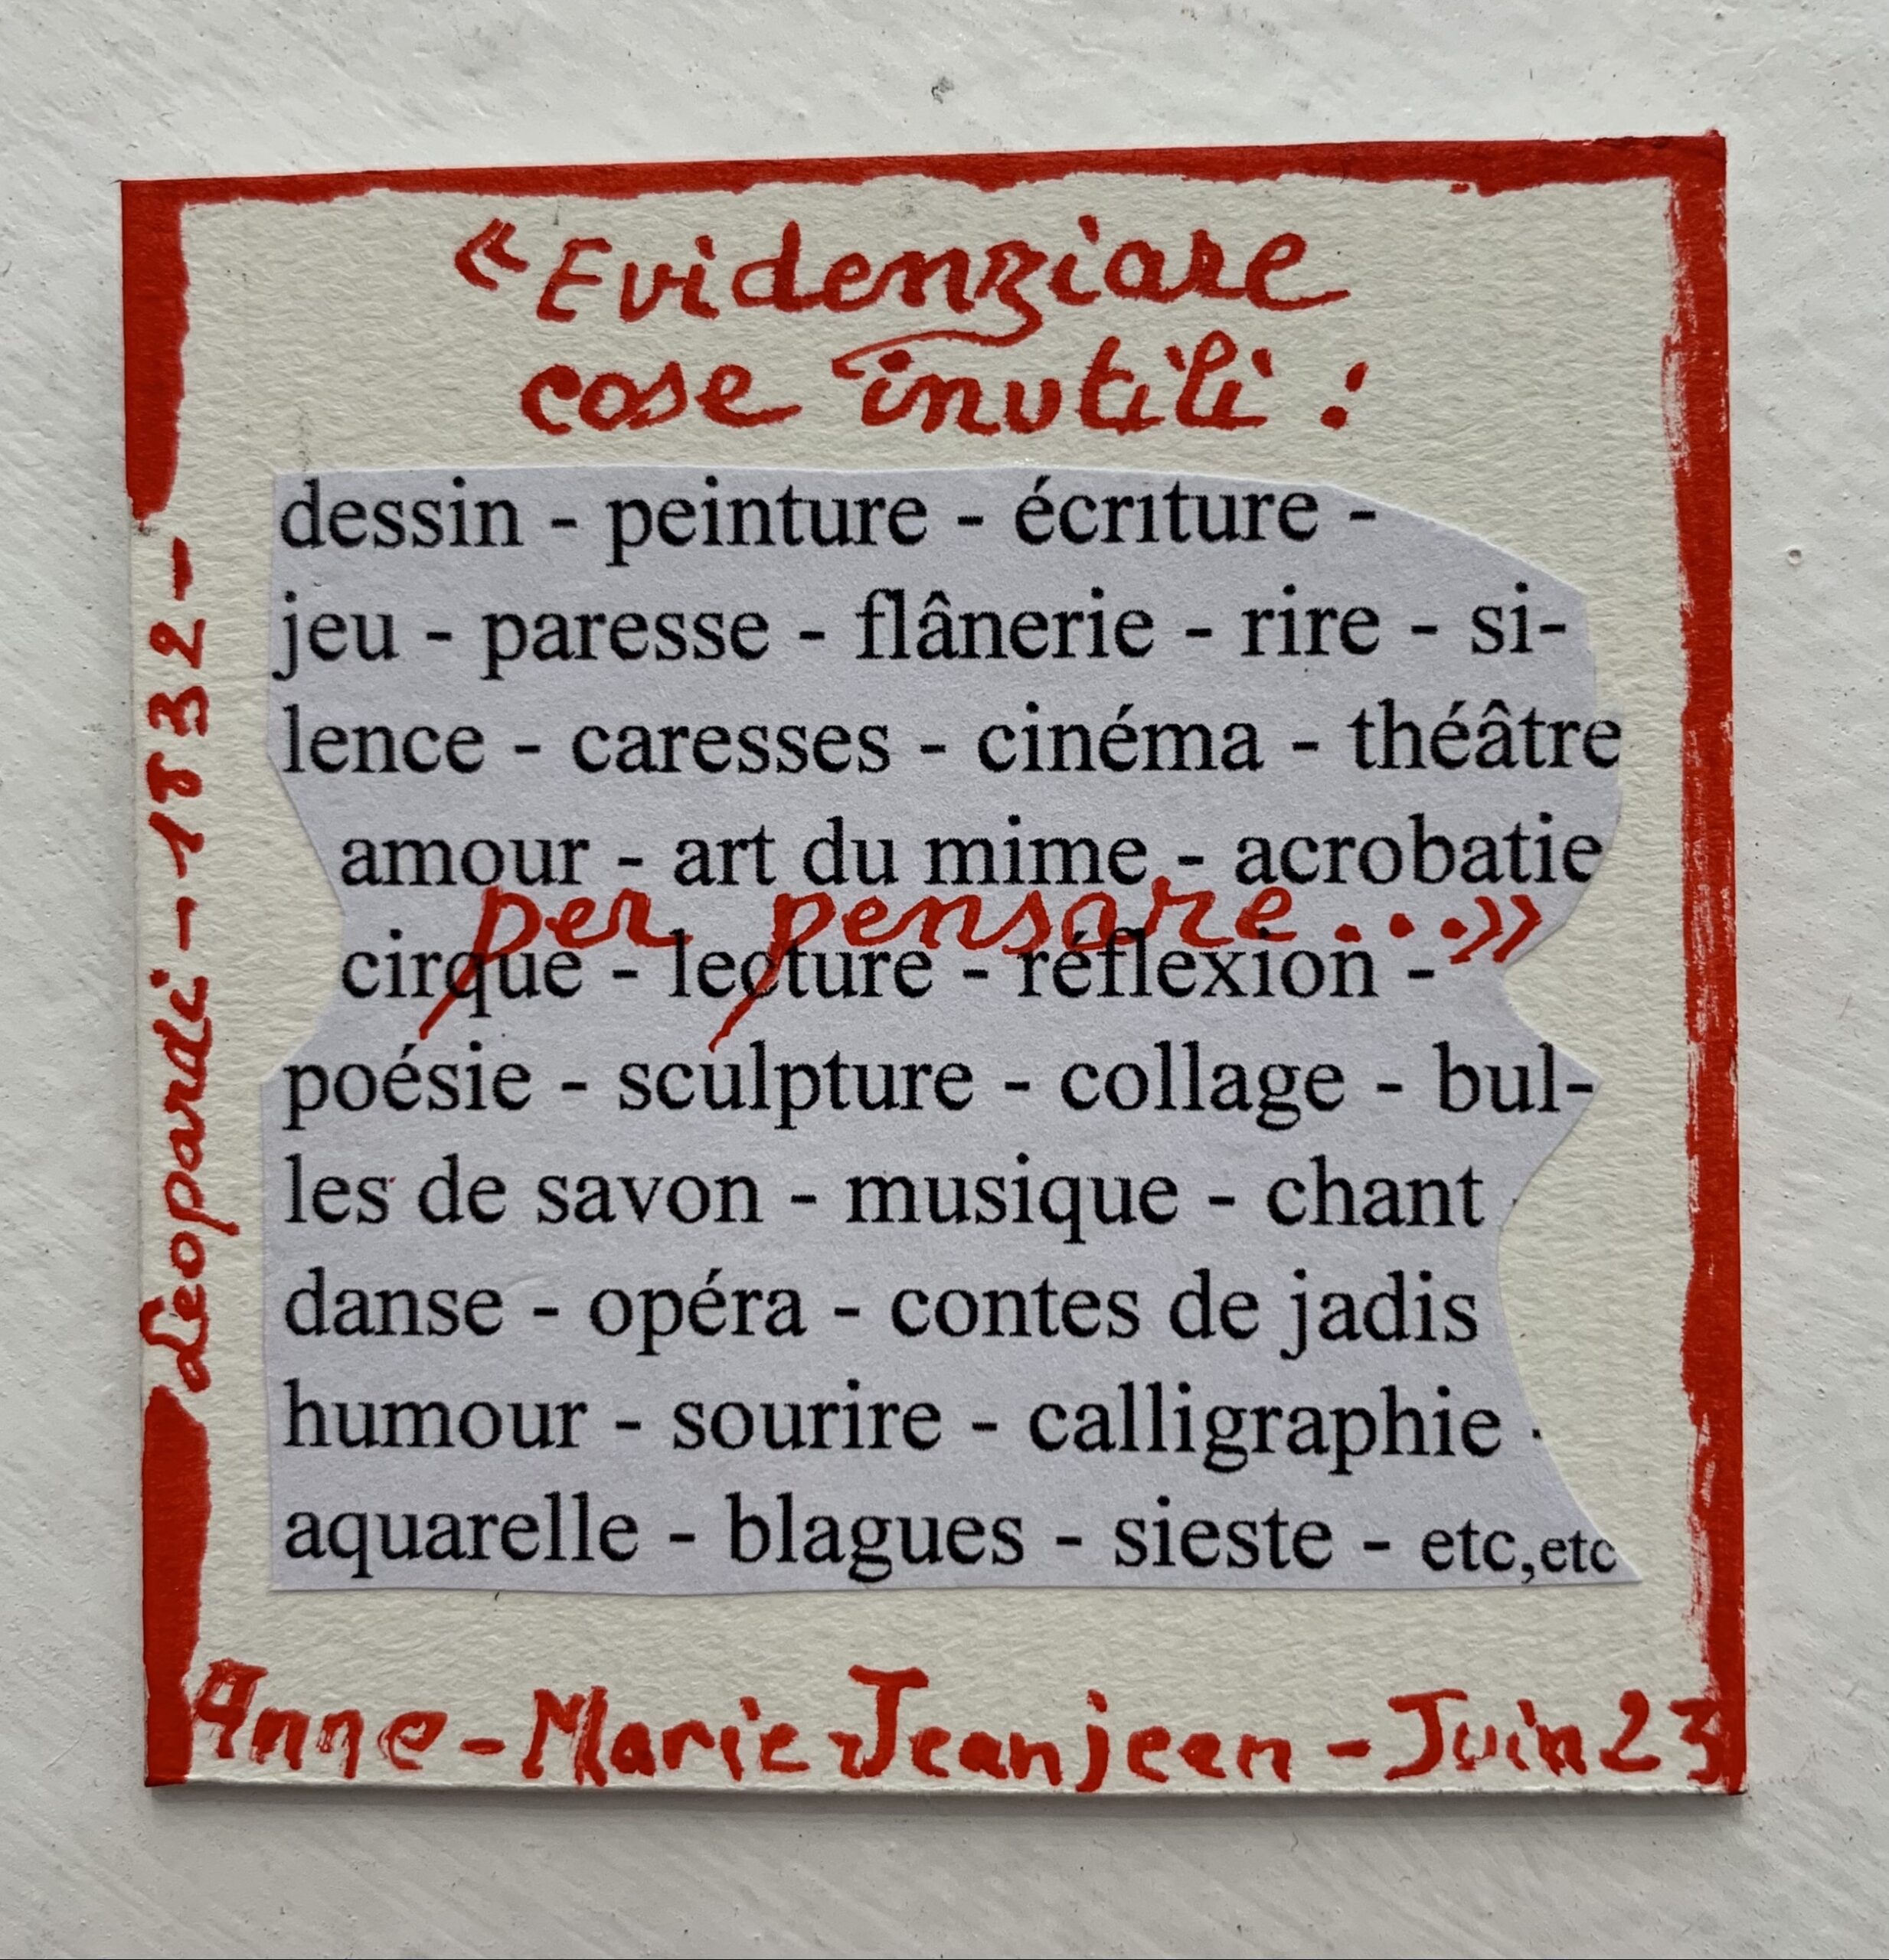 « Evidenziare
cose inutili :
dessin - peinture - écriture -
jeu - paresse - flânerie - rire - si-
lence - caresses - cinéma - théâtre
amour - art du mime - acrobatie
per pensare...»
cirque - lecture - réflexion -
poésie - sculpture - collage - bul-
les de savon - musique - chant
danse - opéra - contes de jadis
humour - sourire - calligraphie -
aquarelle - blagues - sieste - etc,etc
Leopardi - 1832 -
Anne-Marie Jeanjean - Juin 23